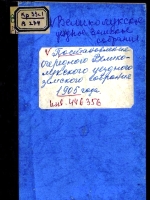 Кр 3351
А 274
√ Великолукское
уездное земское
собрание
√ Постановления
очередного Велико-
лукского уездного
земского собрания
1905 года.
инв. 446356